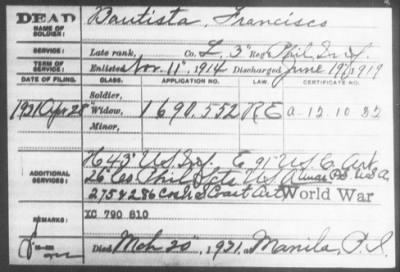 DEAD
NAME OF SOLDIER: Bautista, Francisco
SERVICE: Late rank, Co. L, 3" Reg't Phil. Inf.
TERM OF SERVICE: Enlisted Nov. 11", 1914 Discharged June 19", 1919
DATE OF FILING. CLASS. APPLICATION NO. LAW. CERTIFICATE NO.
Soldier,
1931 Apr 28" Widow, 1690.552 R E a-12-10-32
Minor,
H 43" U.S. Inf. E 91" U.S. C. Art.
ADDITIONAL SERVICES: 26" Co Phil Scts U.S. A
275 & 286 Coast Art World War
REMARKS: XC 790 810
Died Mch 20", 1931, at Manila, P.I.